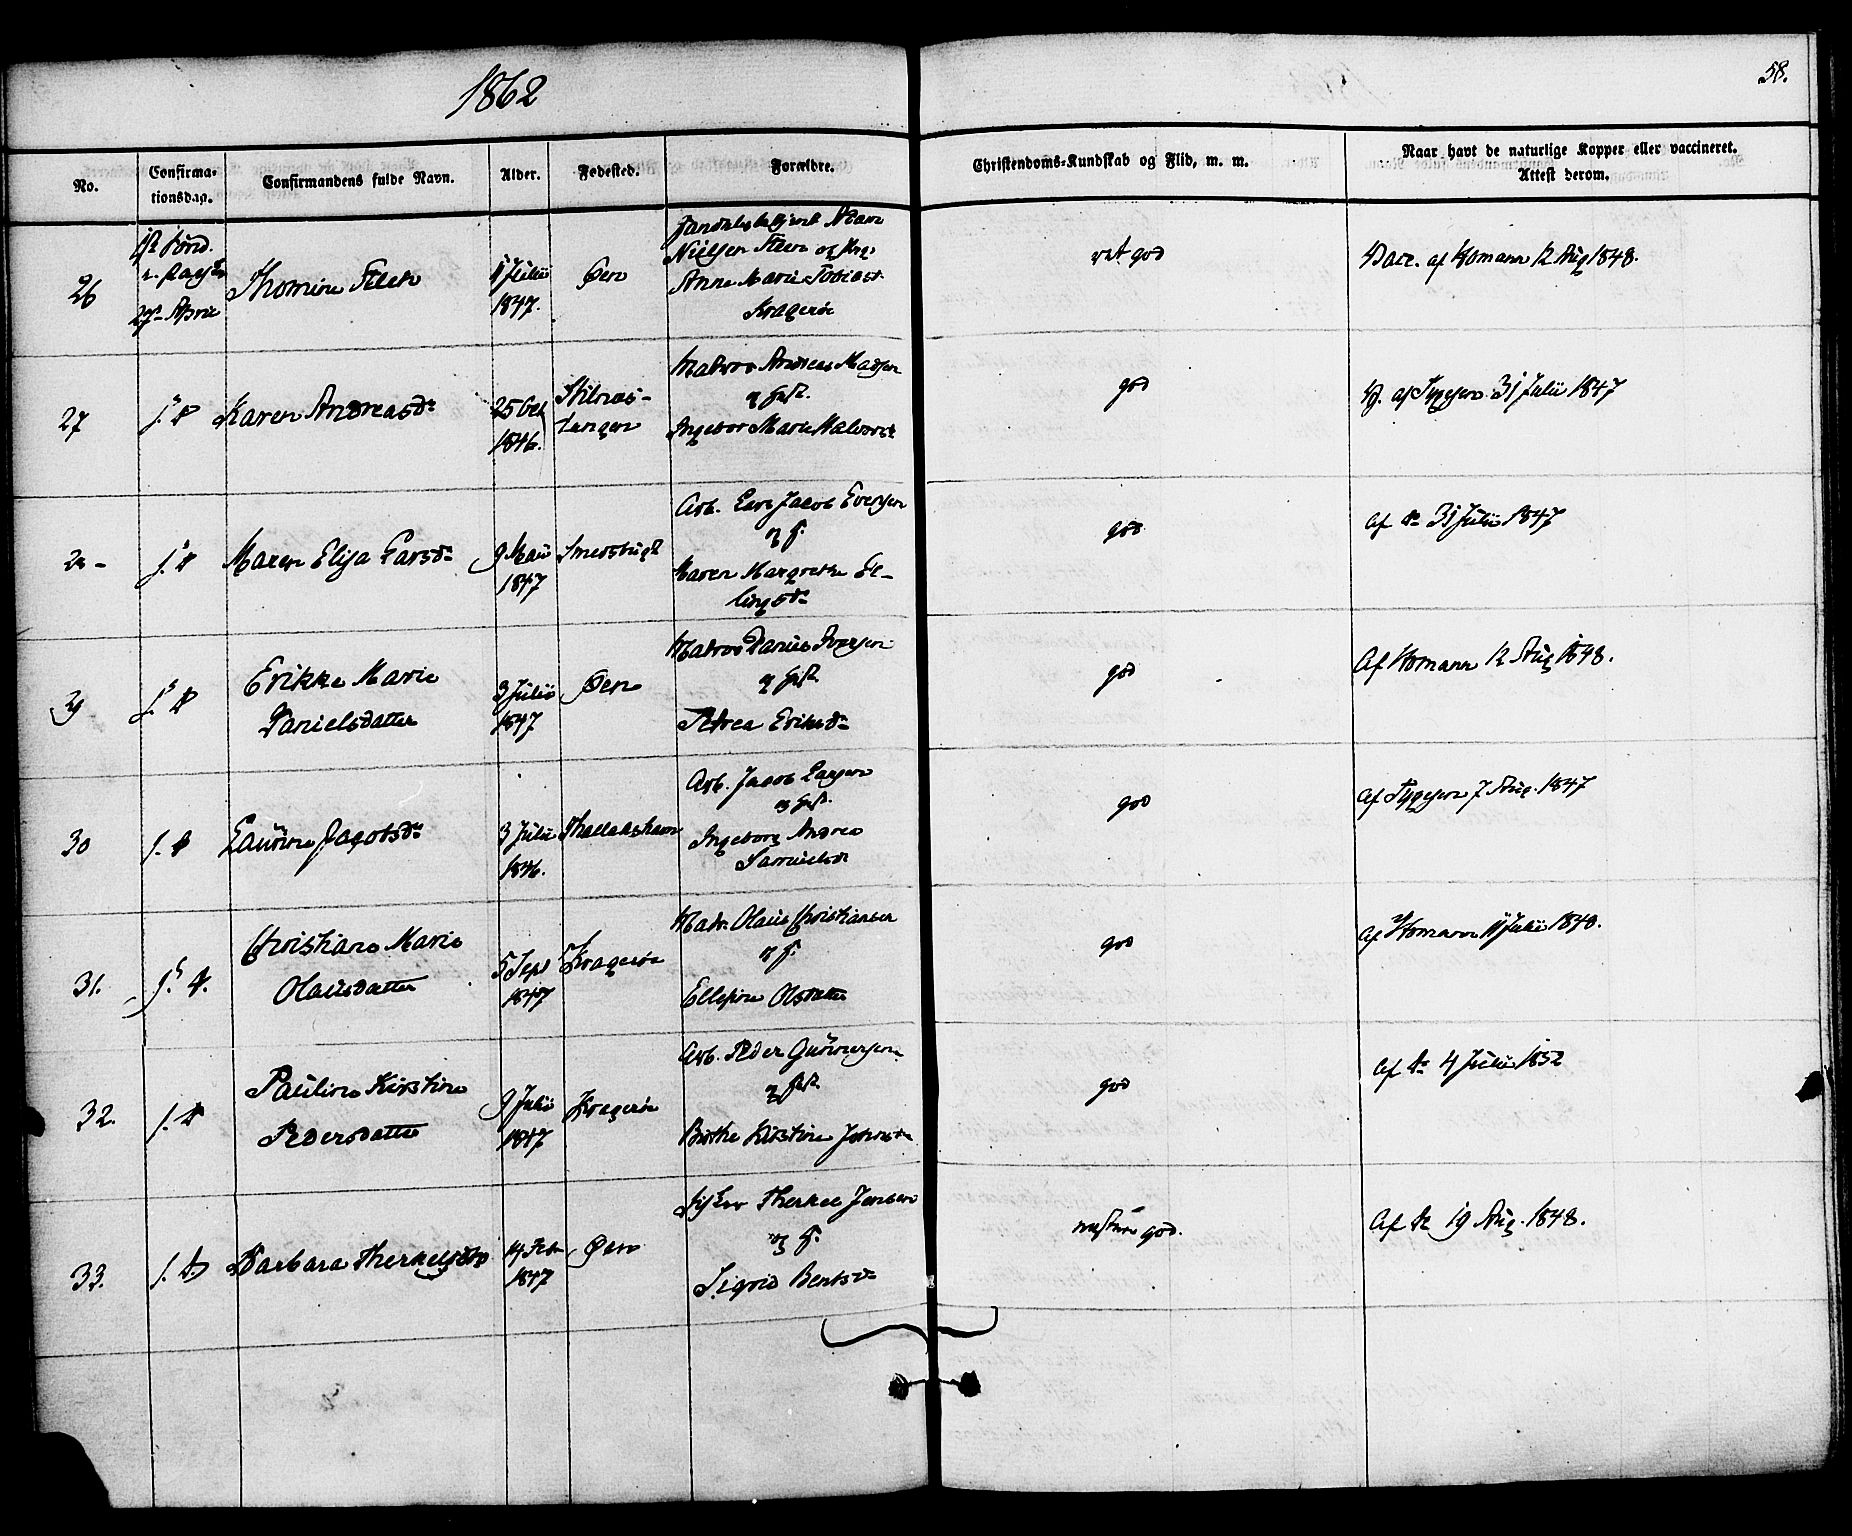 1862
58.
No.
Confirma-
tionsdag.
Confirmandens fulde Navn.
Alder.
Fødested.
Forældre.
Christendoms-Kundskab og Flid, m. m.
Naar havt de naturlige Kopper eller vaccineret.
Attest derom.
26
27 April
Thomine
Juli
1847.
Øen
Nielsen
Anne Marie Tobiasd.
Kragerøe
god
Vacc. af Homann 12 Aug 1848.
27
Karen Andreasd.
25 Oct
1846.
Stilnæs-
tangen
Matros Andreas Madsen
og
Ingebor Marie Halvorsd.
god
V. af Tygesen 31 Julii 1847
Maren Elisa Larsd.
9 Mai
1847
Smersbugt
Arb. Lars Jacob Evensen
og
Maren Margrethe El-
lingsd.
god
af do 31 Julii 1847
Erikke Marie
Danielsdatter
3 Julii
1847
Øen
Matros Daniel Iversen
og
Petrea Eriksd.
god
Af Homann 12 Aug 1848.
30
Laurine Jacobsd.
3 Julii
1846.
Arb. Jacob Larsen
og
Ingeborg Andrea
Samuelsd.
god
af Tygesen 7 Aug. 1847
31.
Christiane Marie
Olausdatter
5 Sept
1847
Kragerøe
Matr. Olaus Christiansen
og
Ellefine Olsdatter
god
af Homann Julii 1848.
32.
Pauline Kirstine
Pedersdatter
9 Julii
1847
Kragerøe
Arb. Peder Gunnersen
og
Birthe Kirstine Johnsd.
god
af do 4 Julii 1852
33.
Barbara Therkelsdtr
14 Febr
1847
Øen
Fisker Therkel Jensen
og
Sigrid Bentsd.
næsten god.
Af do 19 Aug. 1848.